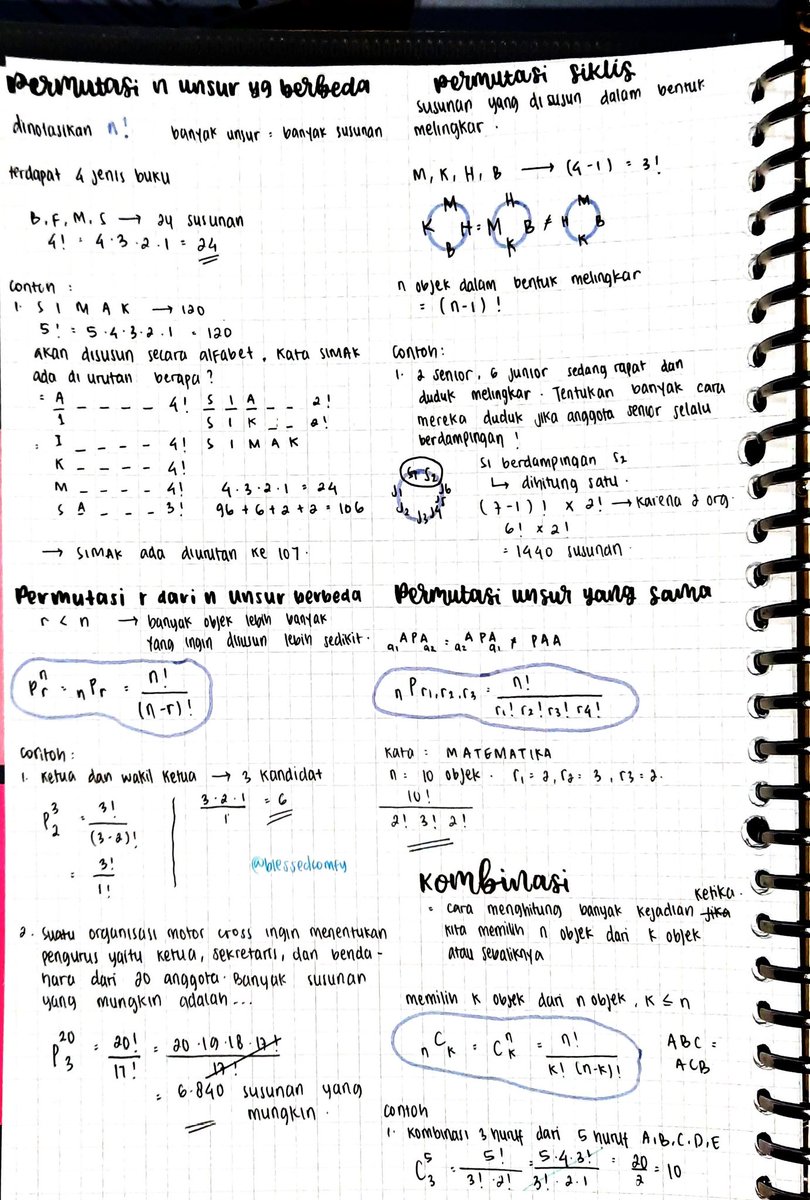 Permutasi n unsur yg berbeda
dinotasikan n! banyak unsur = banyak susunan
terdapat 4 jenis buku
B, F, M, S → 24 susunan
4! = 4·3·2·1 = 24
contoh :
1. S I M A K → 120
5! = 5·4·3·2·1 = 120
akan disusun secara alfabet, kata SIMAK
ada di urutan berapa?
= A _ _ _ _ 4! S I A _ _ 2!
1 S I K _ _ 2!
= I _ _ _ _ 4! S I M A K
K _ _ _ _ 4!
M _ _ _ _ 4! 4·3·2·1 = 24
S A _ _ _ 3! 96 + 6 + 2 + 2 = 106
→ SIMAK ada diurutan ke 107.
Permutasi siklis
susunan yang disusun dalam bentuk
melingkar.
M, K, H, B → (4-1) = 3!
M H M
K H = M B ≠ H B
B K K
n objek dalam bentuk melingkar
= (n-1)!
contoh:
1. 2 senior, 6 junior sedang rapat dan
duduk melingkar. Tentukan banyak cara
mereka duduk jika anggota senior selalu
berdampingan!
S1 S2
J1 J6
J5
J2 J3 J4
S1 berdampingan S2
↳ dihitung satu.
(7-1)! × 2! → karena 2 org.
6! × 2!
= 1440 susunan.
Permutasi r dari n unsur berbeda
r < n → banyak objek lebih banyak
yang ingin disusun lebih sedikit.
P^n_r = nPr = n!/(n-r)!
contoh:
1. Ketua dan wakil ketua → 3 kandidat
P^3_2 = 3!/(3-2)! 3·2·1/1 = 6
= 3!/1!
@blessedcomfy
2. Suatu organisasi motor cross ingin menentukan
pengurus yaitu ketua, sekretaris, dan benda-
hara dari 20 anggota. Banyak susunan
yang mungkin adalah...
P^20_3 = 20!/17! = 20·19·18·17!/17!
= 6.840 susunan yang
mungkin.
Permutasi unsur yang sama
a1 A P A a2 = a2 A P A a1 ≠ PAA
nP r1,r2,r3 = n!/r1! r2! r3! r4!
kata : MATEMATIKA
n = 10 objek. r1=2, r2=3, r3=2.
10!
2! 3! 2!
Kombinasi
= cara menghitung banyak kejadian jika ketika.
kita memilih n objek dari k objek
atau sebaliknya
memilih k objek dari n objek, k ≤ n
nCk = C^n_k = n!/k! (n-k)! ABC =
ACB
contoh
1. Kombinasi 3 huruf dari 5 huruf A,B,C,D,E
C^5_3 = 5!/3!·2! = 5·4·3!/3!·2·1 = 20/2 = 10